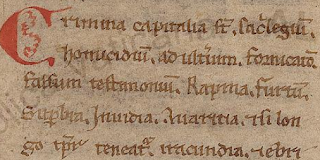 Crimina capitalia st̄. Sac̄legiū.
homicidiū. adult̄ium. fornicatio.
falsum testimoniū. Rapina. furtū.
Supbia. Invidia. Avaritia. & si lon
go tp̄re teneat᷑ iracundia. & ebri